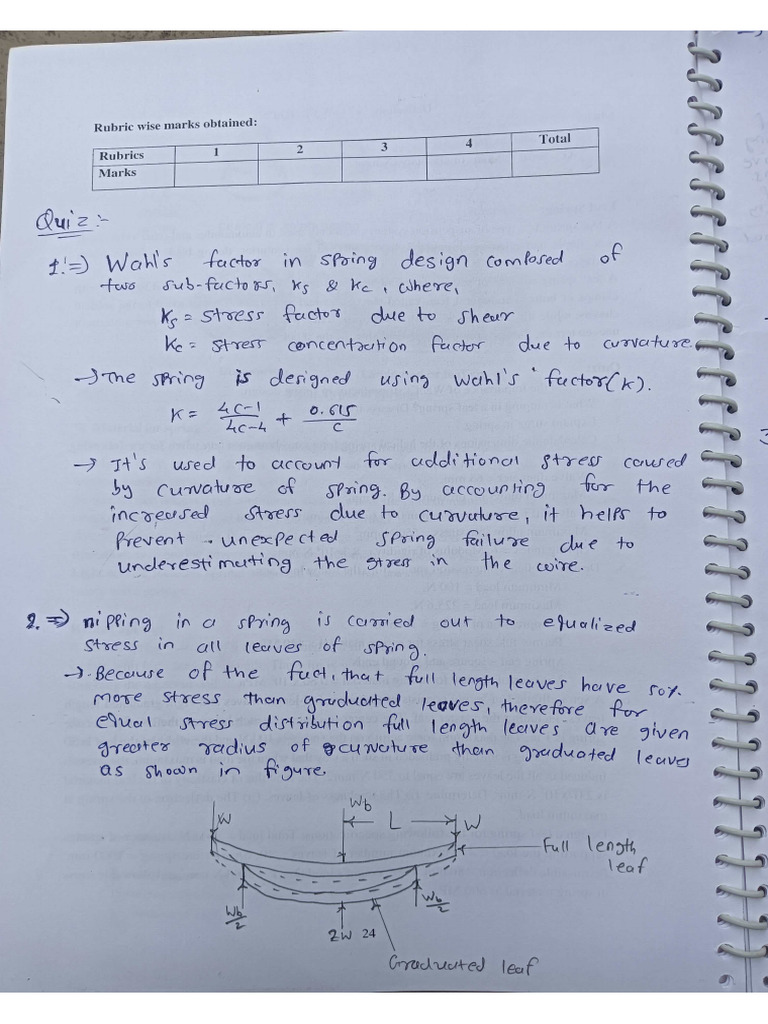 Rubric wise marks obtained:
Rubrics 1 2 3 4 Total
Marks
Quiz :-
1.⇒) Wahl's factor in spring design composed of
two sub-factors, Ks & Kc, where,
Ks = stress factor due to shear
Kc = stress concentration factor due to curvature.
→ The spring is designed using Wahl's factor (K).
K = 4C-1/4C-4 + 0.615/C
→ It's used to account for additional stress caused
by curvature of spring. By accounting for the
increased stress due to curvature, it helps to
Prevent unexpected spring failure due to
underestimating the stress in the wire.
2. ⇒) nipping in a spring is carried out to equalized
stress in all leaves of spring.
→ Because of the fact, that full length leaves have 50%
more stress than graduated leaves, therefore for
equal stress distribution full length leaves are given
greater radius of curvature than graduated leaves
as shown in figure.
Wb
W L W
Full length
leaf
Wb/2 Wb/2
2W 24
Graduated leaf